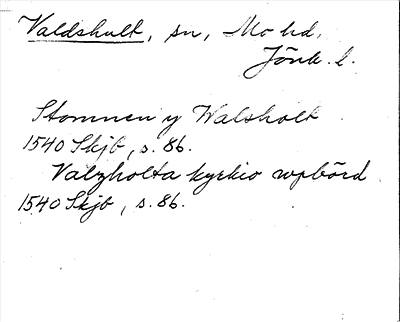 Valdshult, sn, Mo hd.
Jönk. l.
Stomnen y Walsholt
1540 Skjb, s. 86.
Valzholta kyrkio wpbörd
1540 Skjb, s. 86.